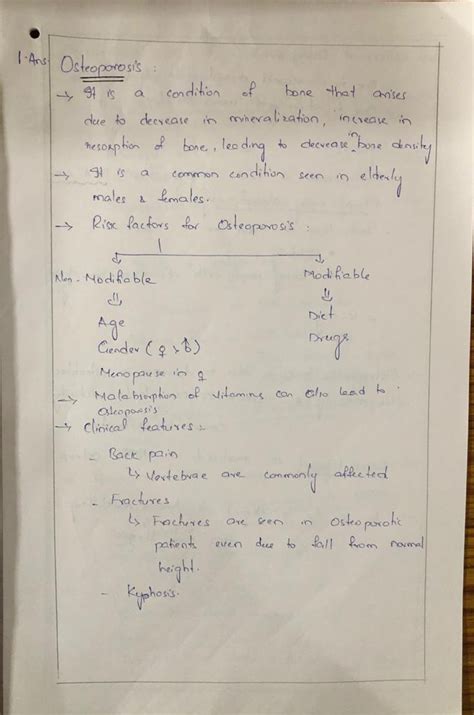 1 Ans. Osteoporosis :
→ It is a condition of bone that arises
due to decrease in mineralization, increase in
resorption of bone, leading to decrease in bone density
→ It is a common condition seen in elderly
males & females.
→ Risk factors for Osteoporosis :
Non-Modifiable Modifiable
⇓ ⇓
Age Diet
Gender (♀ > ♂) Drugs
Menopause in ♀
→ Malabsorption of vitamins can also lead to
Osteoporosis
→ Clinical features :
- Back pain
↳ Vertebrae are commonly affected
- Fractures
↳ Fractures are seen in Osteoporotic
patients even due to fall from normal
height.
- Kyphosis.